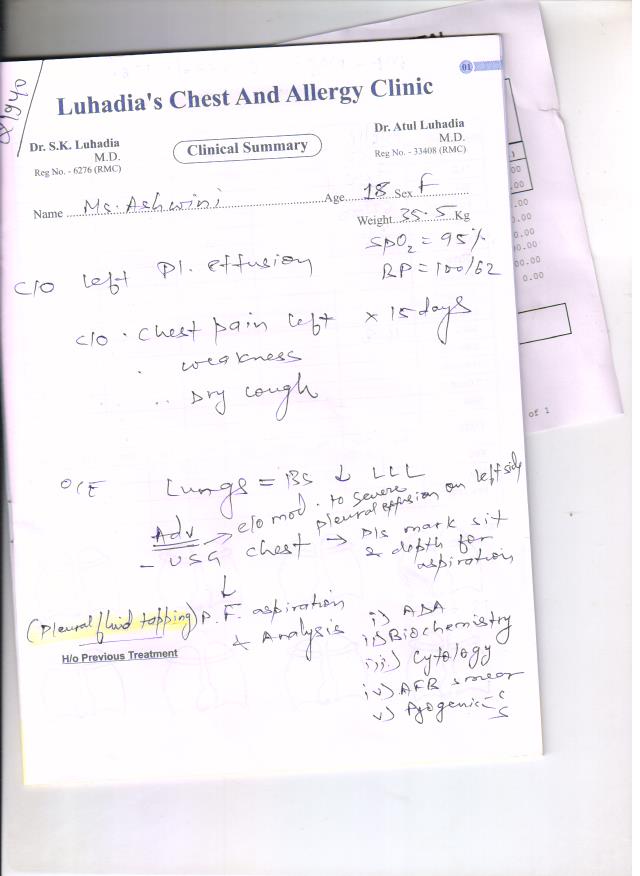 01
Luhadia's Chest And Allergy Clinic
Dr. S.K. Luhadia
M.D.
Reg No. - 6276 (RMC)
Clinical Summary
Dr. Atul Luhadia
M.D.
Reg No. - 33408 (RMC)
Name Ms. Ashwini Age 18 Sex F
Weight 35.5 Kg
SPO2 = 95%
BP = 100/62
C/O left Pl. effusion
C/O . Chest pain left x 15 days
. weakness
.. Dry cough
O/E Lungs = BS ↓ LLL
Adv → e/o mod. to severe pleural effusion on left side
- USG chest → Pls mark sit & depth for aspiration
↓
(Pleural fluid tapping) P.F. aspiration
+ Analysis
i) ADA
ii) Biochemistry
iii) Cytology
iv) AFB smear
v) Pyogenic C/S
H/o Previous Treatment
.00
.00
.00
0.00
0.00
00.00
0.00
of 1